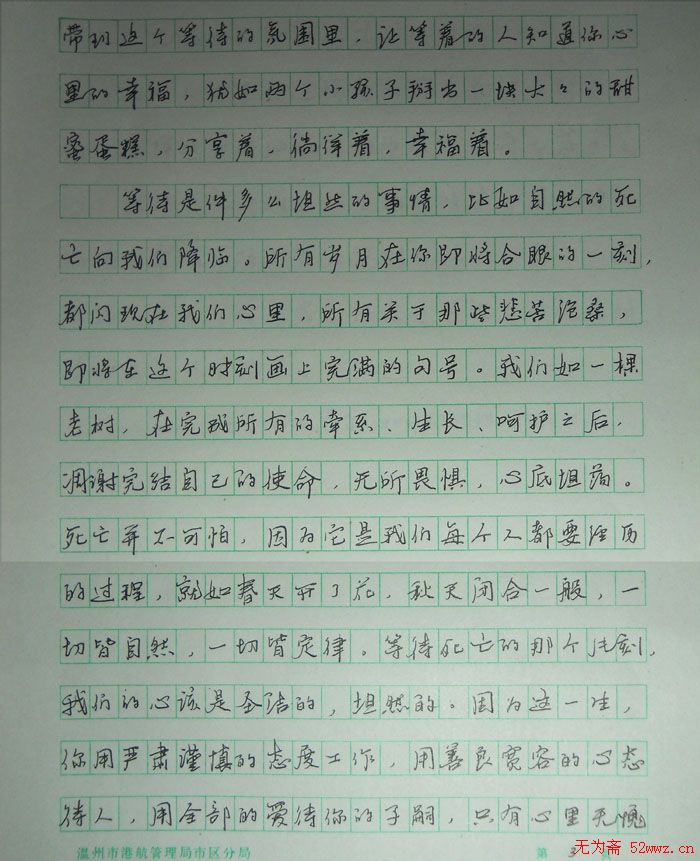 带到这个等待的氛围里，让等着的人知道你心
里的幸福，犹如两个小孩子掰出一块大大的甜
蜜蛋糕，分享着，徜徉着，幸福着。
等待是件多么坦然的事情，比如自然的死
亡向我们降临。所有岁月在你即将合眼的一刻，
都闪现在我们心里，所有关于那些悲苦沧桑，
即将在这个时刻画上完满的句号。我们如一棵
老树，在完成所有的牵系、生长、呵护之后，
凋谢完结自己的使命，无所畏惧，心底坦荡。
死亡并不可怕，因为它是我们每个人都要经历
的过程，就如春天开了花，秋天闭合一般，一
切皆自然，一切皆定律。等待死亡的那个片刻，
我们的心该是圣洁的，坦然的。因为这一生，
你用严肃谨慎的态度工作，用善良宽容的心态
待人，用全部的爱待你的子嗣，只有心里无愧
温州市港航管理局市区分局 第 3
无为斋 52wwz.cn